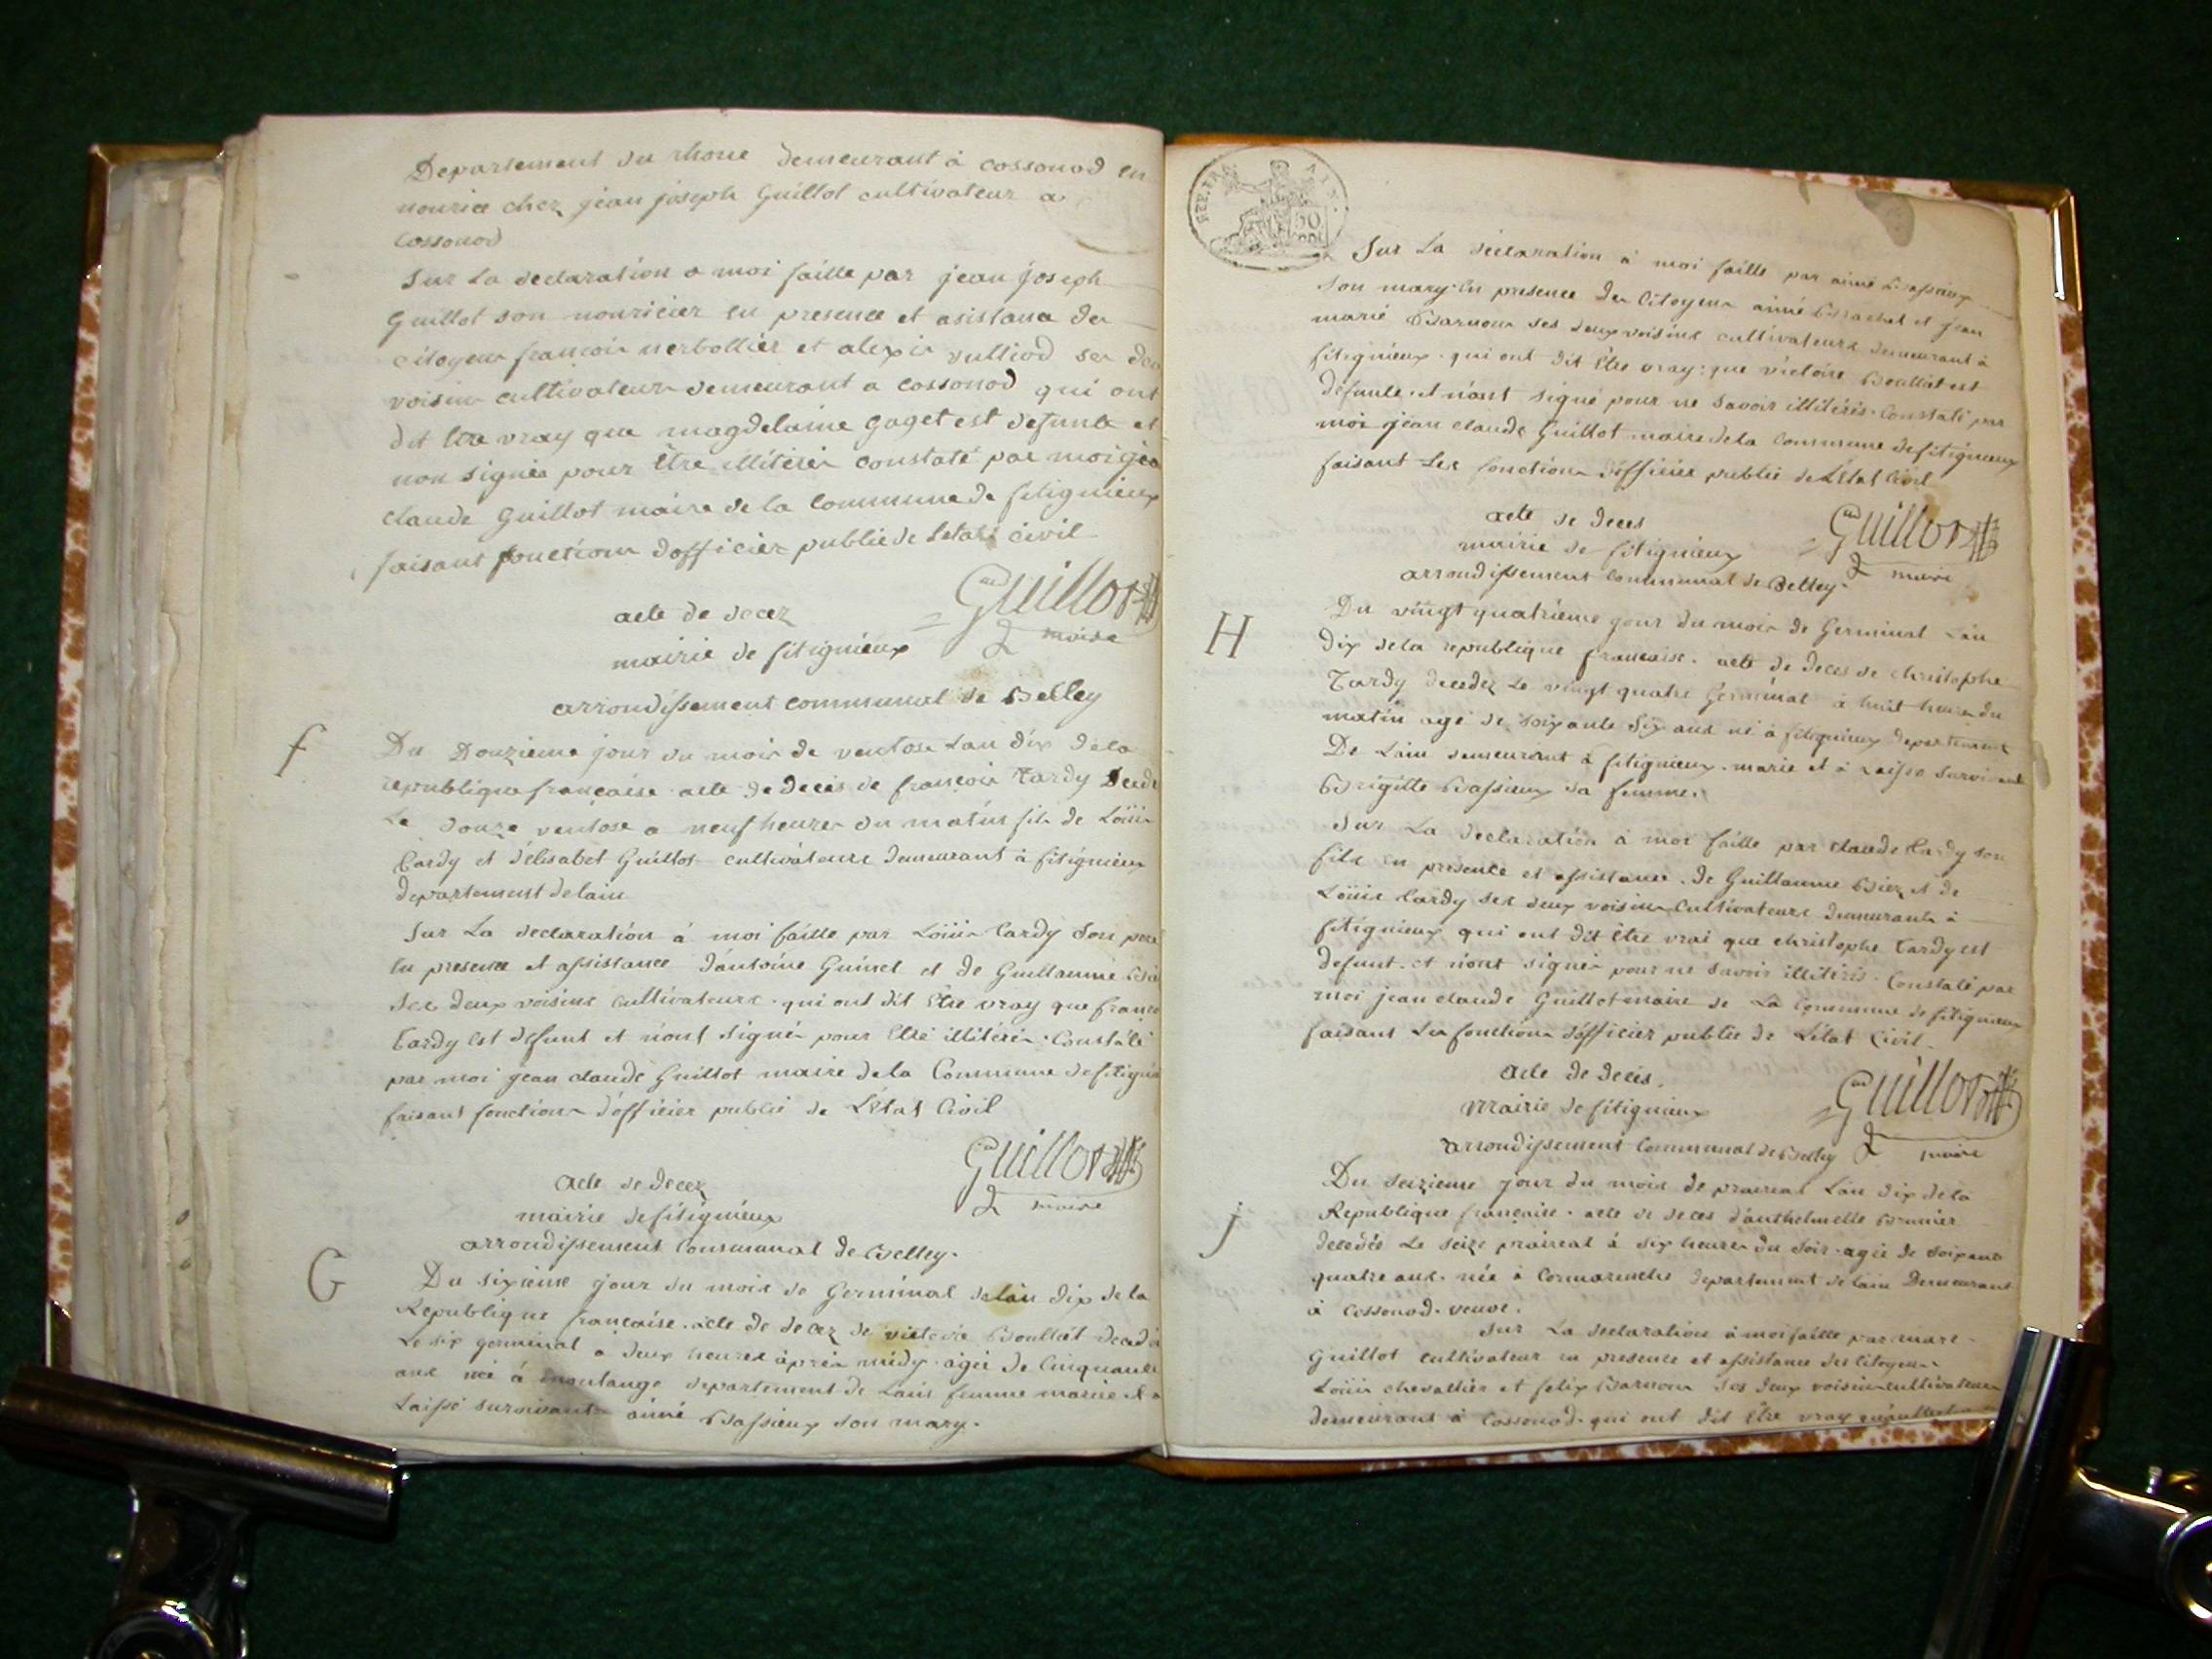 Departement du rhone demeurant à cossonod en
nourice chez jean joseph Guillot cultivateur a
cossonod
Sur La declaration a moi faitte par jean joseph
Guillot son nouricier en presence et asistana des
citoyens françois nerbollier et alexis vulliod ses deux
voisins cultivateurs demeurant a cossonod qui ont
dit Etre vray que magdelaine gaget est defunte et
non signés pour Etre illiterés constaté par moi jea
claude Guillot maire de la commune de fitignieux
faisant fonctions dofficier public de Letat civil
acte de decez
Guillot
maire
mairie de fitignieux
arrondissement communal de Belley
f
Du Douzieme jour du mois de ventose Lan dix de la
republique française acte de decés de françois tardy Decede
Le douze ventose a neuf heures du matin fils de Loüis
tardy et d'élisabet Guillot cultivateurs demeurant à fitignieux
departement de lain
Sur La declaration à moi faitte par Loüis tardy Son pere
en presence et assistance d'antoine Guinet et de Guillaume
Ses deux voisins cultivateurs. qui ont dit Etre vray que franco
tardy est défunt et n'ont signé pour Etre illitérés. Constaté
par moi jean claude Guillot maire de la Commune de fitignie
faisant fonctions d'officier public de L'état Civil
Guillot
maire
acte de decez
mairie de fitignieux
arrondissement Communal de Belley.
G
Du sixieme jour du mois de Germinal de lan dix de la
Republique française. acte de decez de victoire Boulliet decedée
Le six germinal à deux heures àprés midy. agée de Cinquante
ans née à departement de Lain femme mariée et a
Laissé survivants aimé Bassieux son mary.
REP. FRA. AIN.
50
Sur La déclaration à moi faitte par aimé Bassieux
Son mary en presence des Citoyens aimé Brachet et jean
marié Barnoux ses deux voisins cultivateurs demeurant à
fitignieux. qui ont dit Etre vray: que victoire Boulliet est
défunte. et n'ont signé pour ne Savoir illitérés. Constaté par
moi jean claude Guillot maire de la Commune de fitignieux
faisant Les fonctions d'officier public de L'état Civil
acte de deces
Guillot
maire
mairie de fitignieux
arrondissement Communal de Belley.
H
Du vingt quatrieme jour du mois de Germinal Lan
dix de la republique française. acte de deces de christophe
Tardy decedez Le vingt quatre Germinal à huit heures du
matin agé de soixante Six ans né à fitignieux departement
De Lain demeurant à fitignieux. marié et à Laissé Survivante
Brigitte Bassieux Sa femme.
Sur La declaration à moi faitte par claude tardy son
fils en présence et assistance. de Guillaume Biez et de
Loüis tardy Ses deux voisins Cultivateurs demeurants à
fitignieux qui ont dit Etre vrai que christophe tardy est
defunt. et n'ont signés pour ne Savoir illitérés. Constaté par
moi jean claude Guillot maire de La Commune de fitignieux
faisant Les fonctions d'officier public de L'état Civil.
acte de decés.
Guillot
maire
Mairie de fitignieux
arrondissement Communal de Belley
j
Du Seizieme jour du mois de praireal Lan dix de la
Republique française. acte de deces d'anthelmette Brunier
decedée Le Seize praireal à Six heures du Soir. agée de Soixante
quatre ans. née à Connarenche departement de Lain Demeurant
à Cossonod. veuve.
Sur La declaration à moi faitte par marc
Guillot cultivateur en presence et assistance des Citoyens
Loüis chevallier et felix Barnoux Ses deux voisins cultivateurs
demeurans à Cossonod. qui ont dit Etre vray